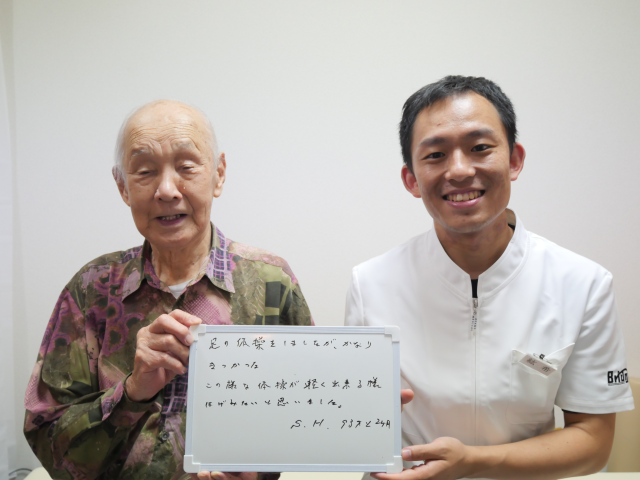 足の体操をしましたが、かなり
きつかった
この様な体操が軽く出来る様
はげみたいと思いました。
S. H. 93才と2ヶ月